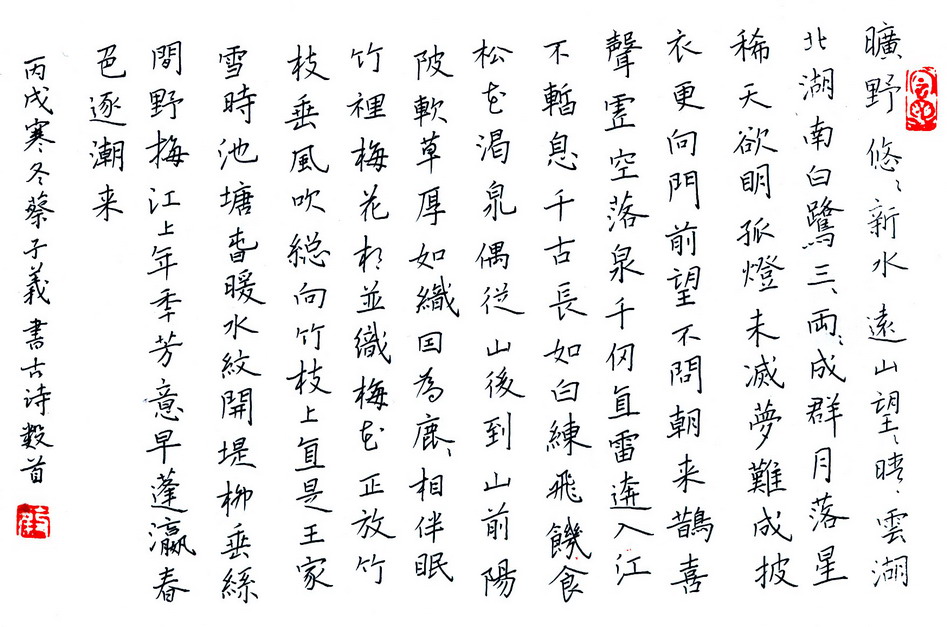 曠野悠〻新水遠山望〻晴〻雲湖
北湖南白鷺三〻兩〻成群月落星
稀天欲明孤燈未滅夢難成披
衣更向門前望不問朝来鵲喜
聲虛空落泉千仞直雷奔入江
不暫息千古長如白練飛饑食
松花渴泉偶從山後到山前陽
陂軟草厚如織囙為鹿〻相伴眠
竹裡梅花相並織梅花正放竹
枝垂風吹總向竹枝上直是王家
雪時池塘春暖水紋開堤柳垂絲
間野梅江上年季芳意早蓬瀛春
色逐潮来
丙戌寒冬蔡子義書古诗數首